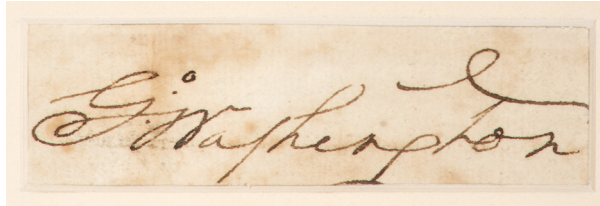 G: Washington